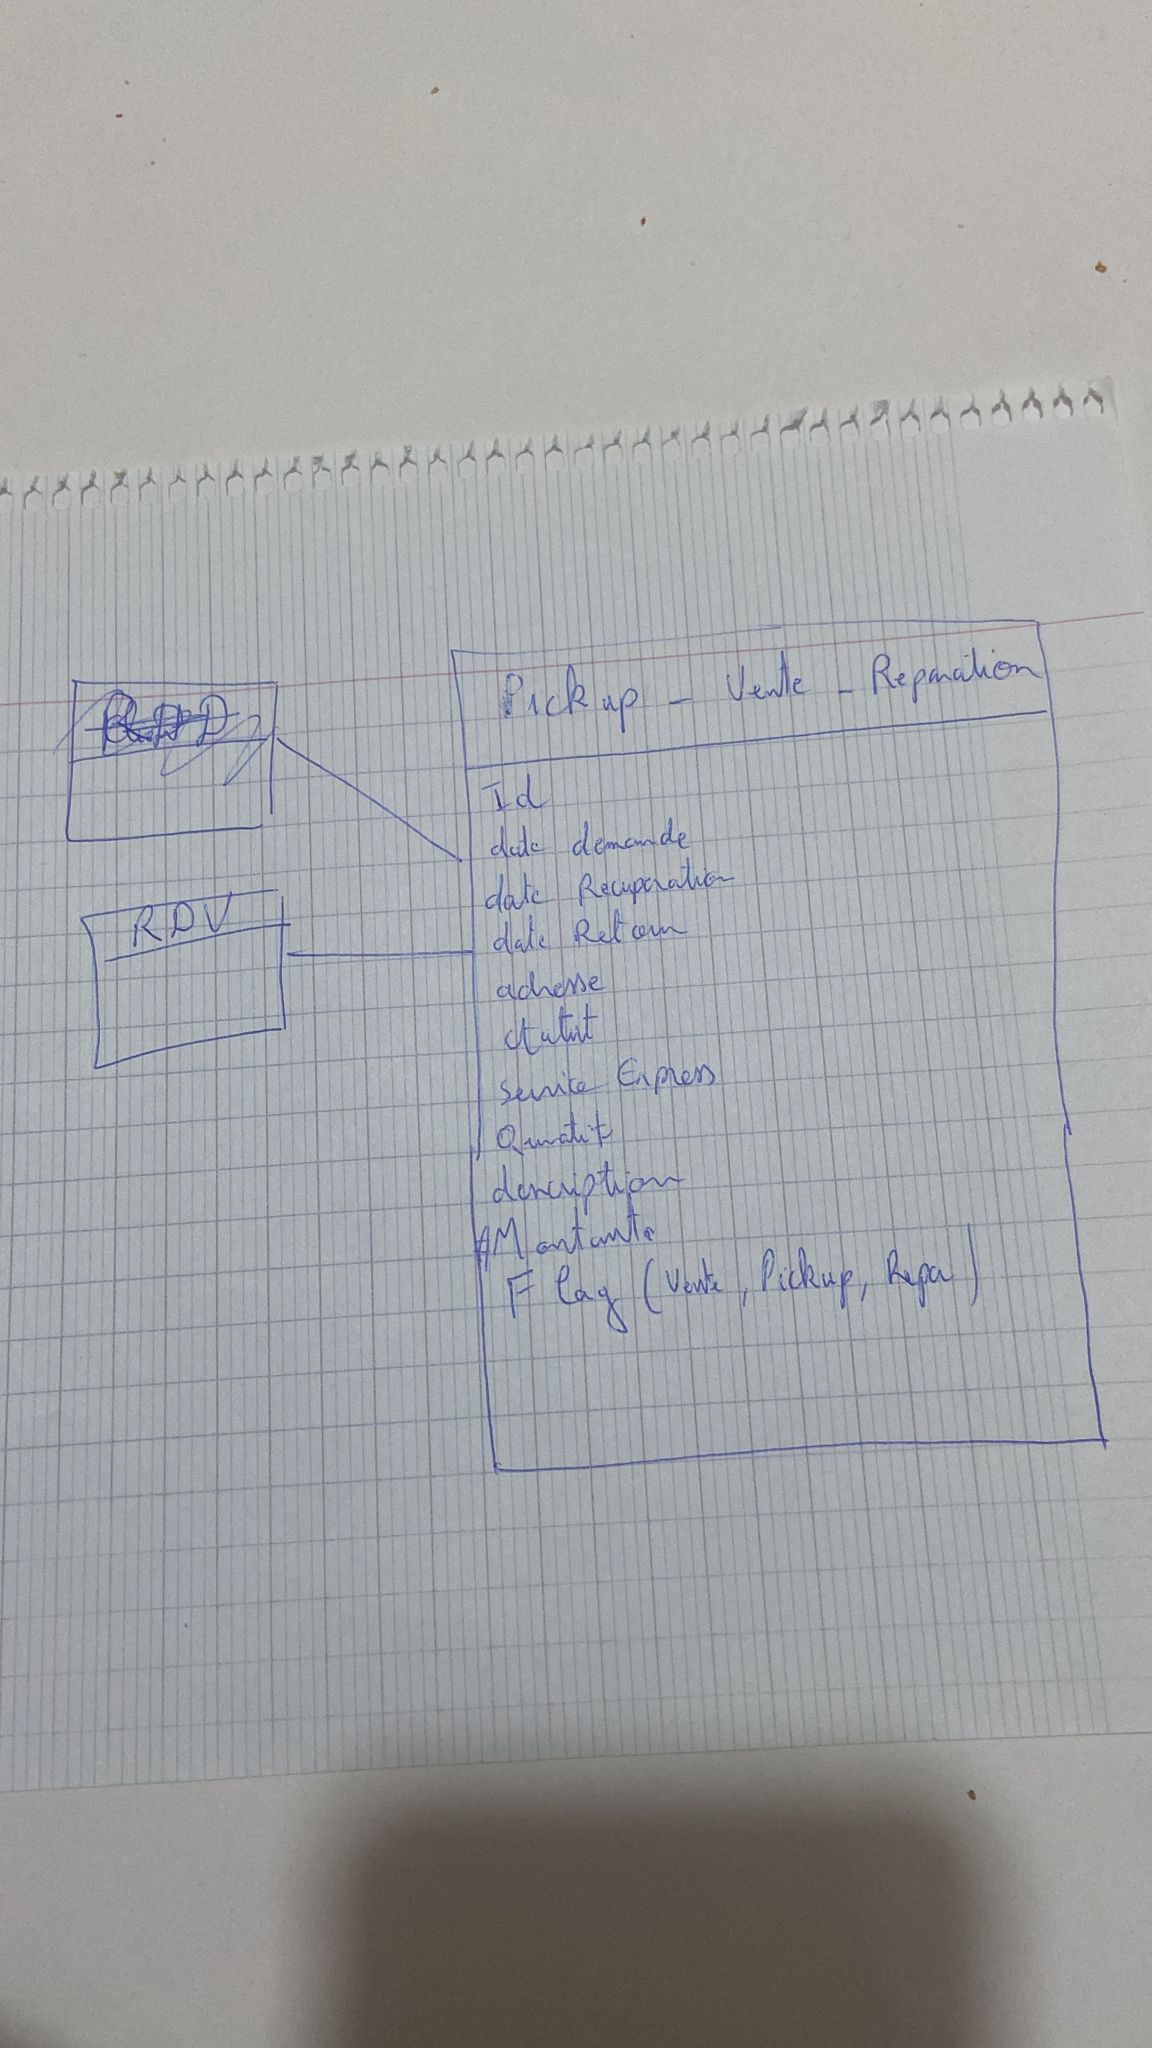 Pickup - Vente - Reparation
RDV
Id
date demande
date Recuperation
date Retour
adresse
statut
Service Express
Quantit
description
Montante
Flag (Vente, Pickup, Repa)